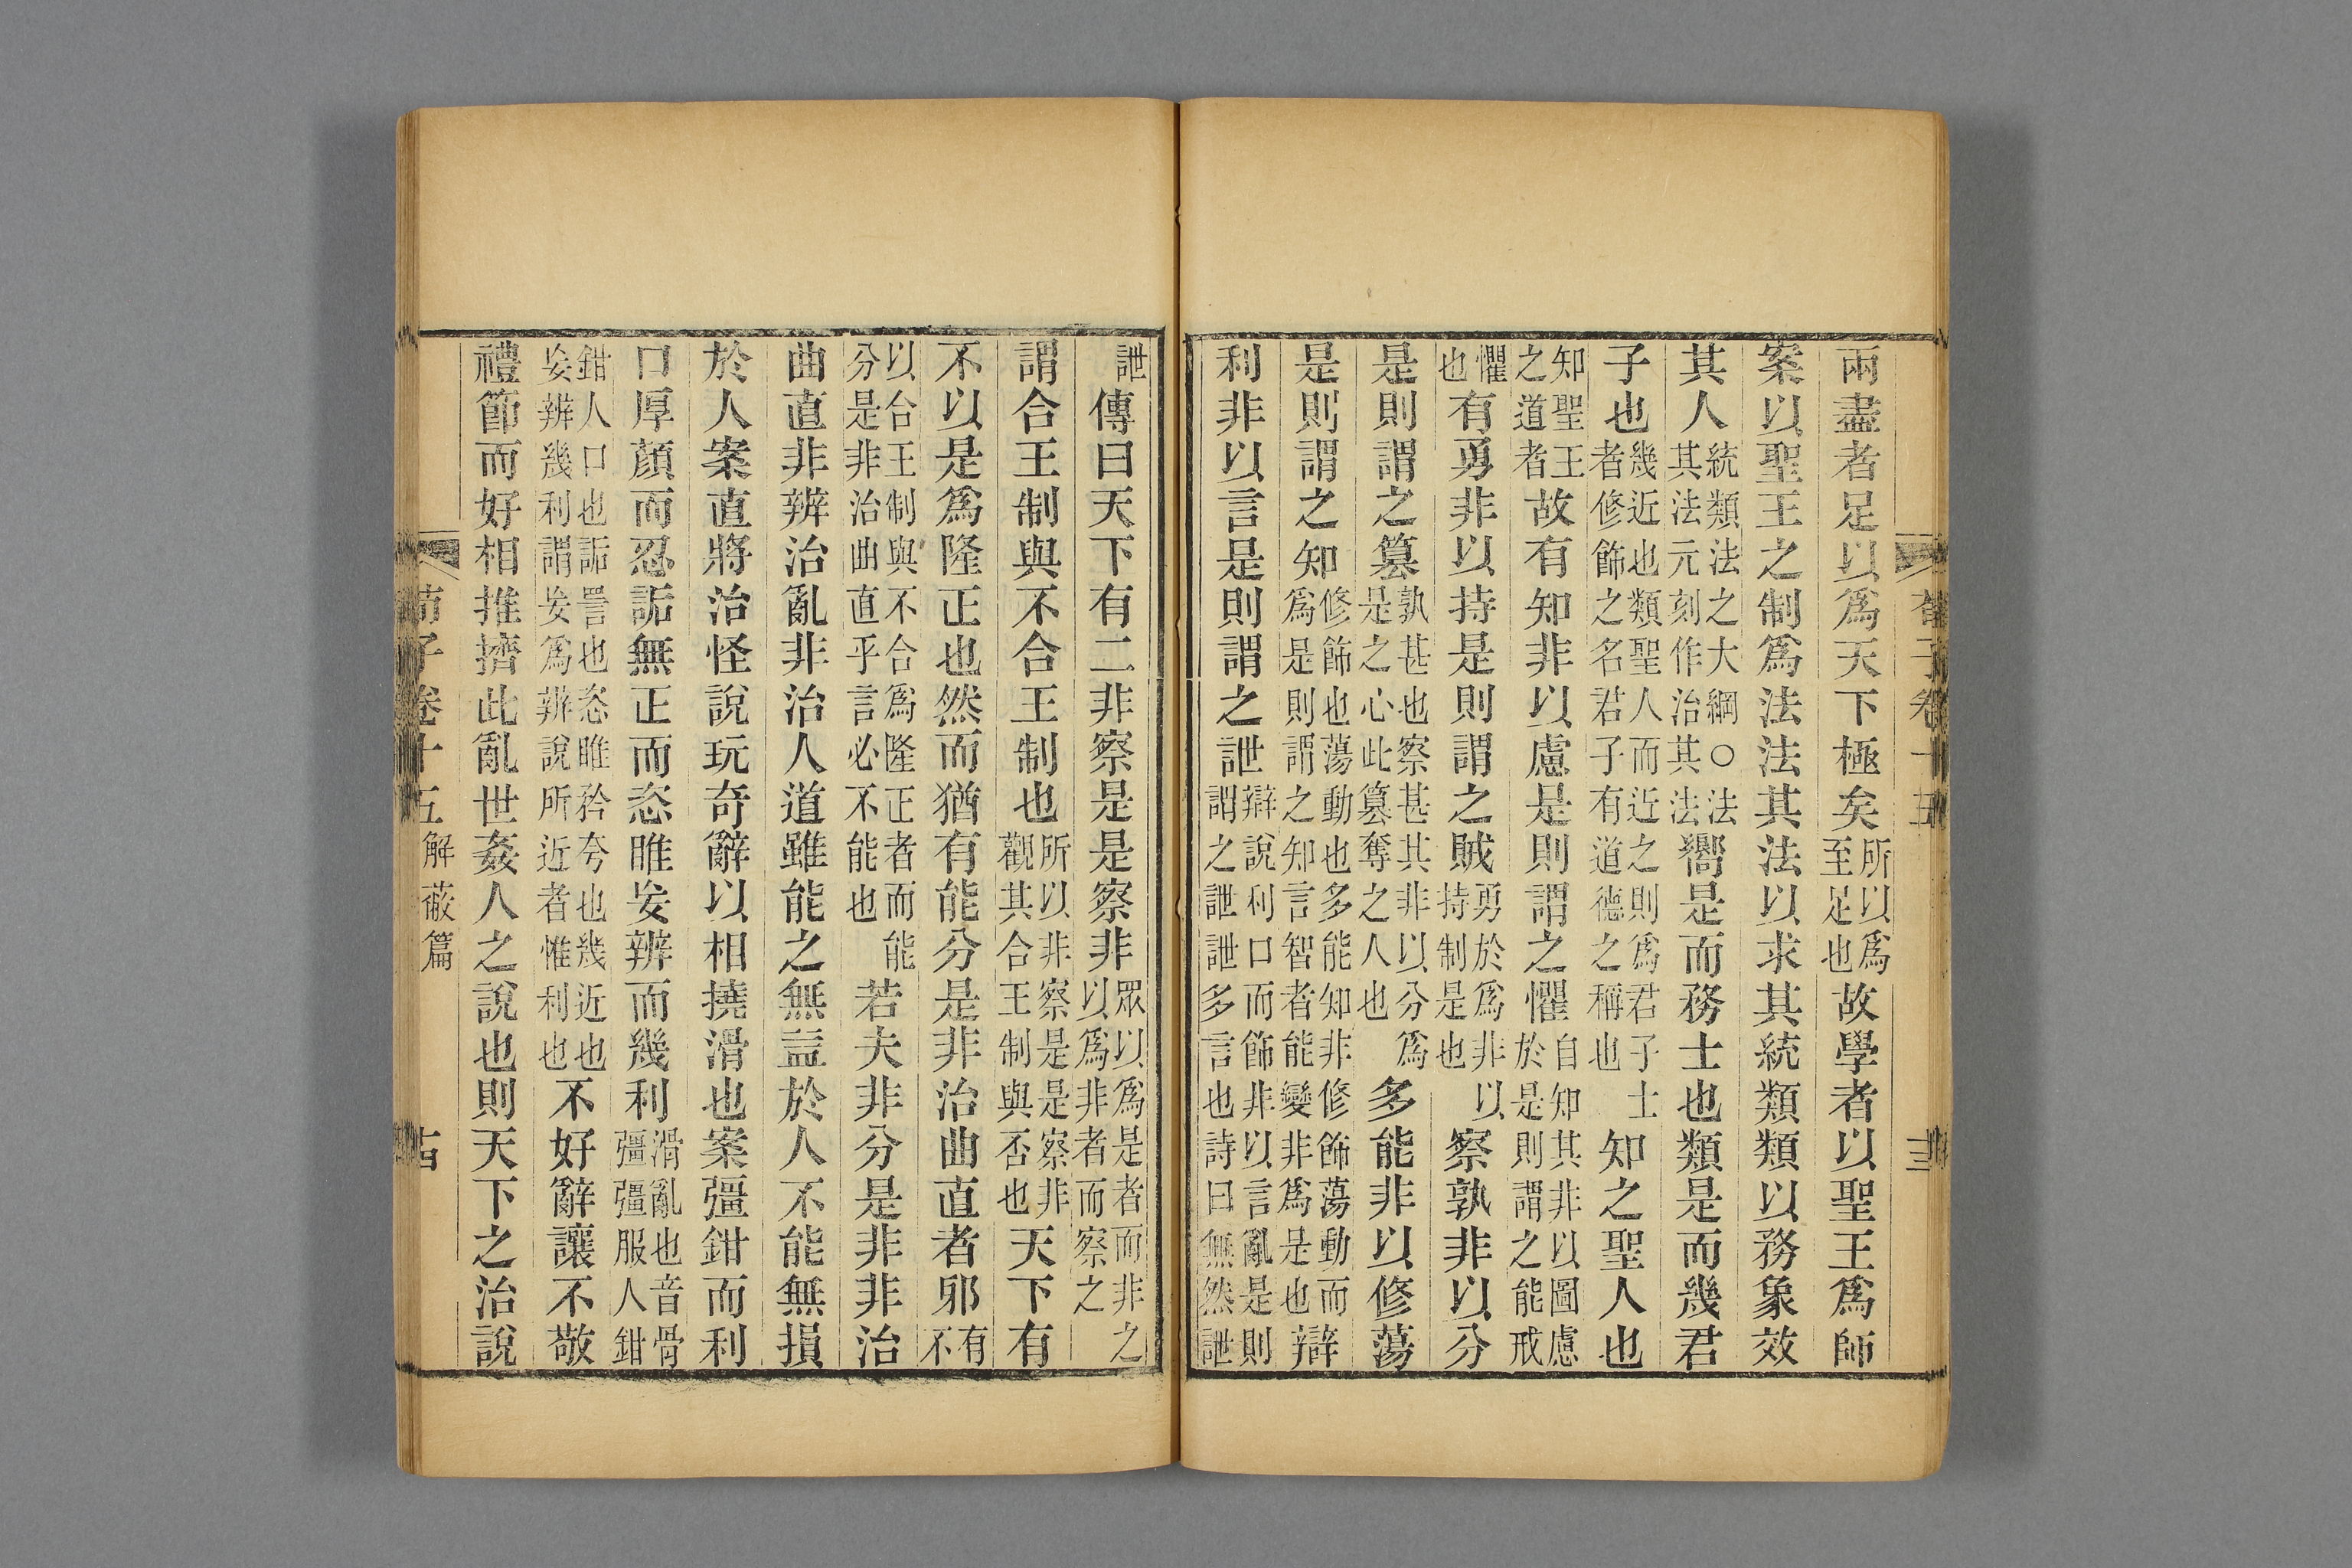 荀子卷十五 十三
兩盡者足以爲天下極矣所以爲至足也故學者以聖王爲師
案以聖王之制爲法法其法以求其統類類以務象效
其人統類法之大綱○法其法元刻作治其法嚮是而務士也類是而幾君
子也幾近也類聖人而近之則爲君子士者修飾之名君子有道德之稱也知之聖人也
知聖王之道者故有知非以慮是則謂之懼自知其非以圖慮於是則謂之能戒
懼也有勇非以持是則謂之賊勇於爲非以持制是也察孰非以分
是則謂之篡孰甚也察甚其非以分爲是之心此篡奪之人也多能非以修蕩
是則謂之知修飾也蕩動也多能知非修飾蕩動而爲是則謂之知言智者能變非爲是也辯
利非以言是則謂之詍辯說利口而飾非以言亂是則謂之詍詍多言也詩曰無然詍
詍傳曰天下有二非察是是察非眾以爲是者而非之以爲非者而察之
謂合王制與不合王制也所以非察是是察非觀其合王制與否也天下有
不以是爲隆正也然而猶有能分是非治曲直者邪有不
以合王制與不合爲隆正者而能分是非治曲直乎言必不能也若夫非分是非非治
曲直非辨治亂非治人道雖能之無益於人不能無損
於人案直將治怪說玩奇辭以相撓滑也案彊鉗而利
口厚顏而忍詬無正而恣睢妄辨而幾利滑亂也音骨彊彊服人鉗
鉗人口也詬詈也恣睢矜夸也幾近也妄辨幾利謂妄爲辨說所近者惟利也不好辭讓不敬
禮節而好相推擠此亂世姦人之說也則天下之治說
荀子卷十五 解蔽篇 十四